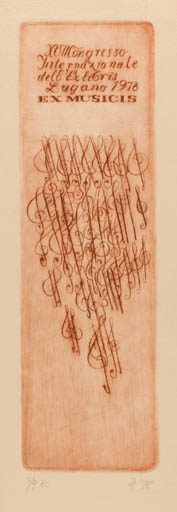 XVII Congresso
Internazionale
dell'Ex libris
Lugano 1978
EX MUSICIS